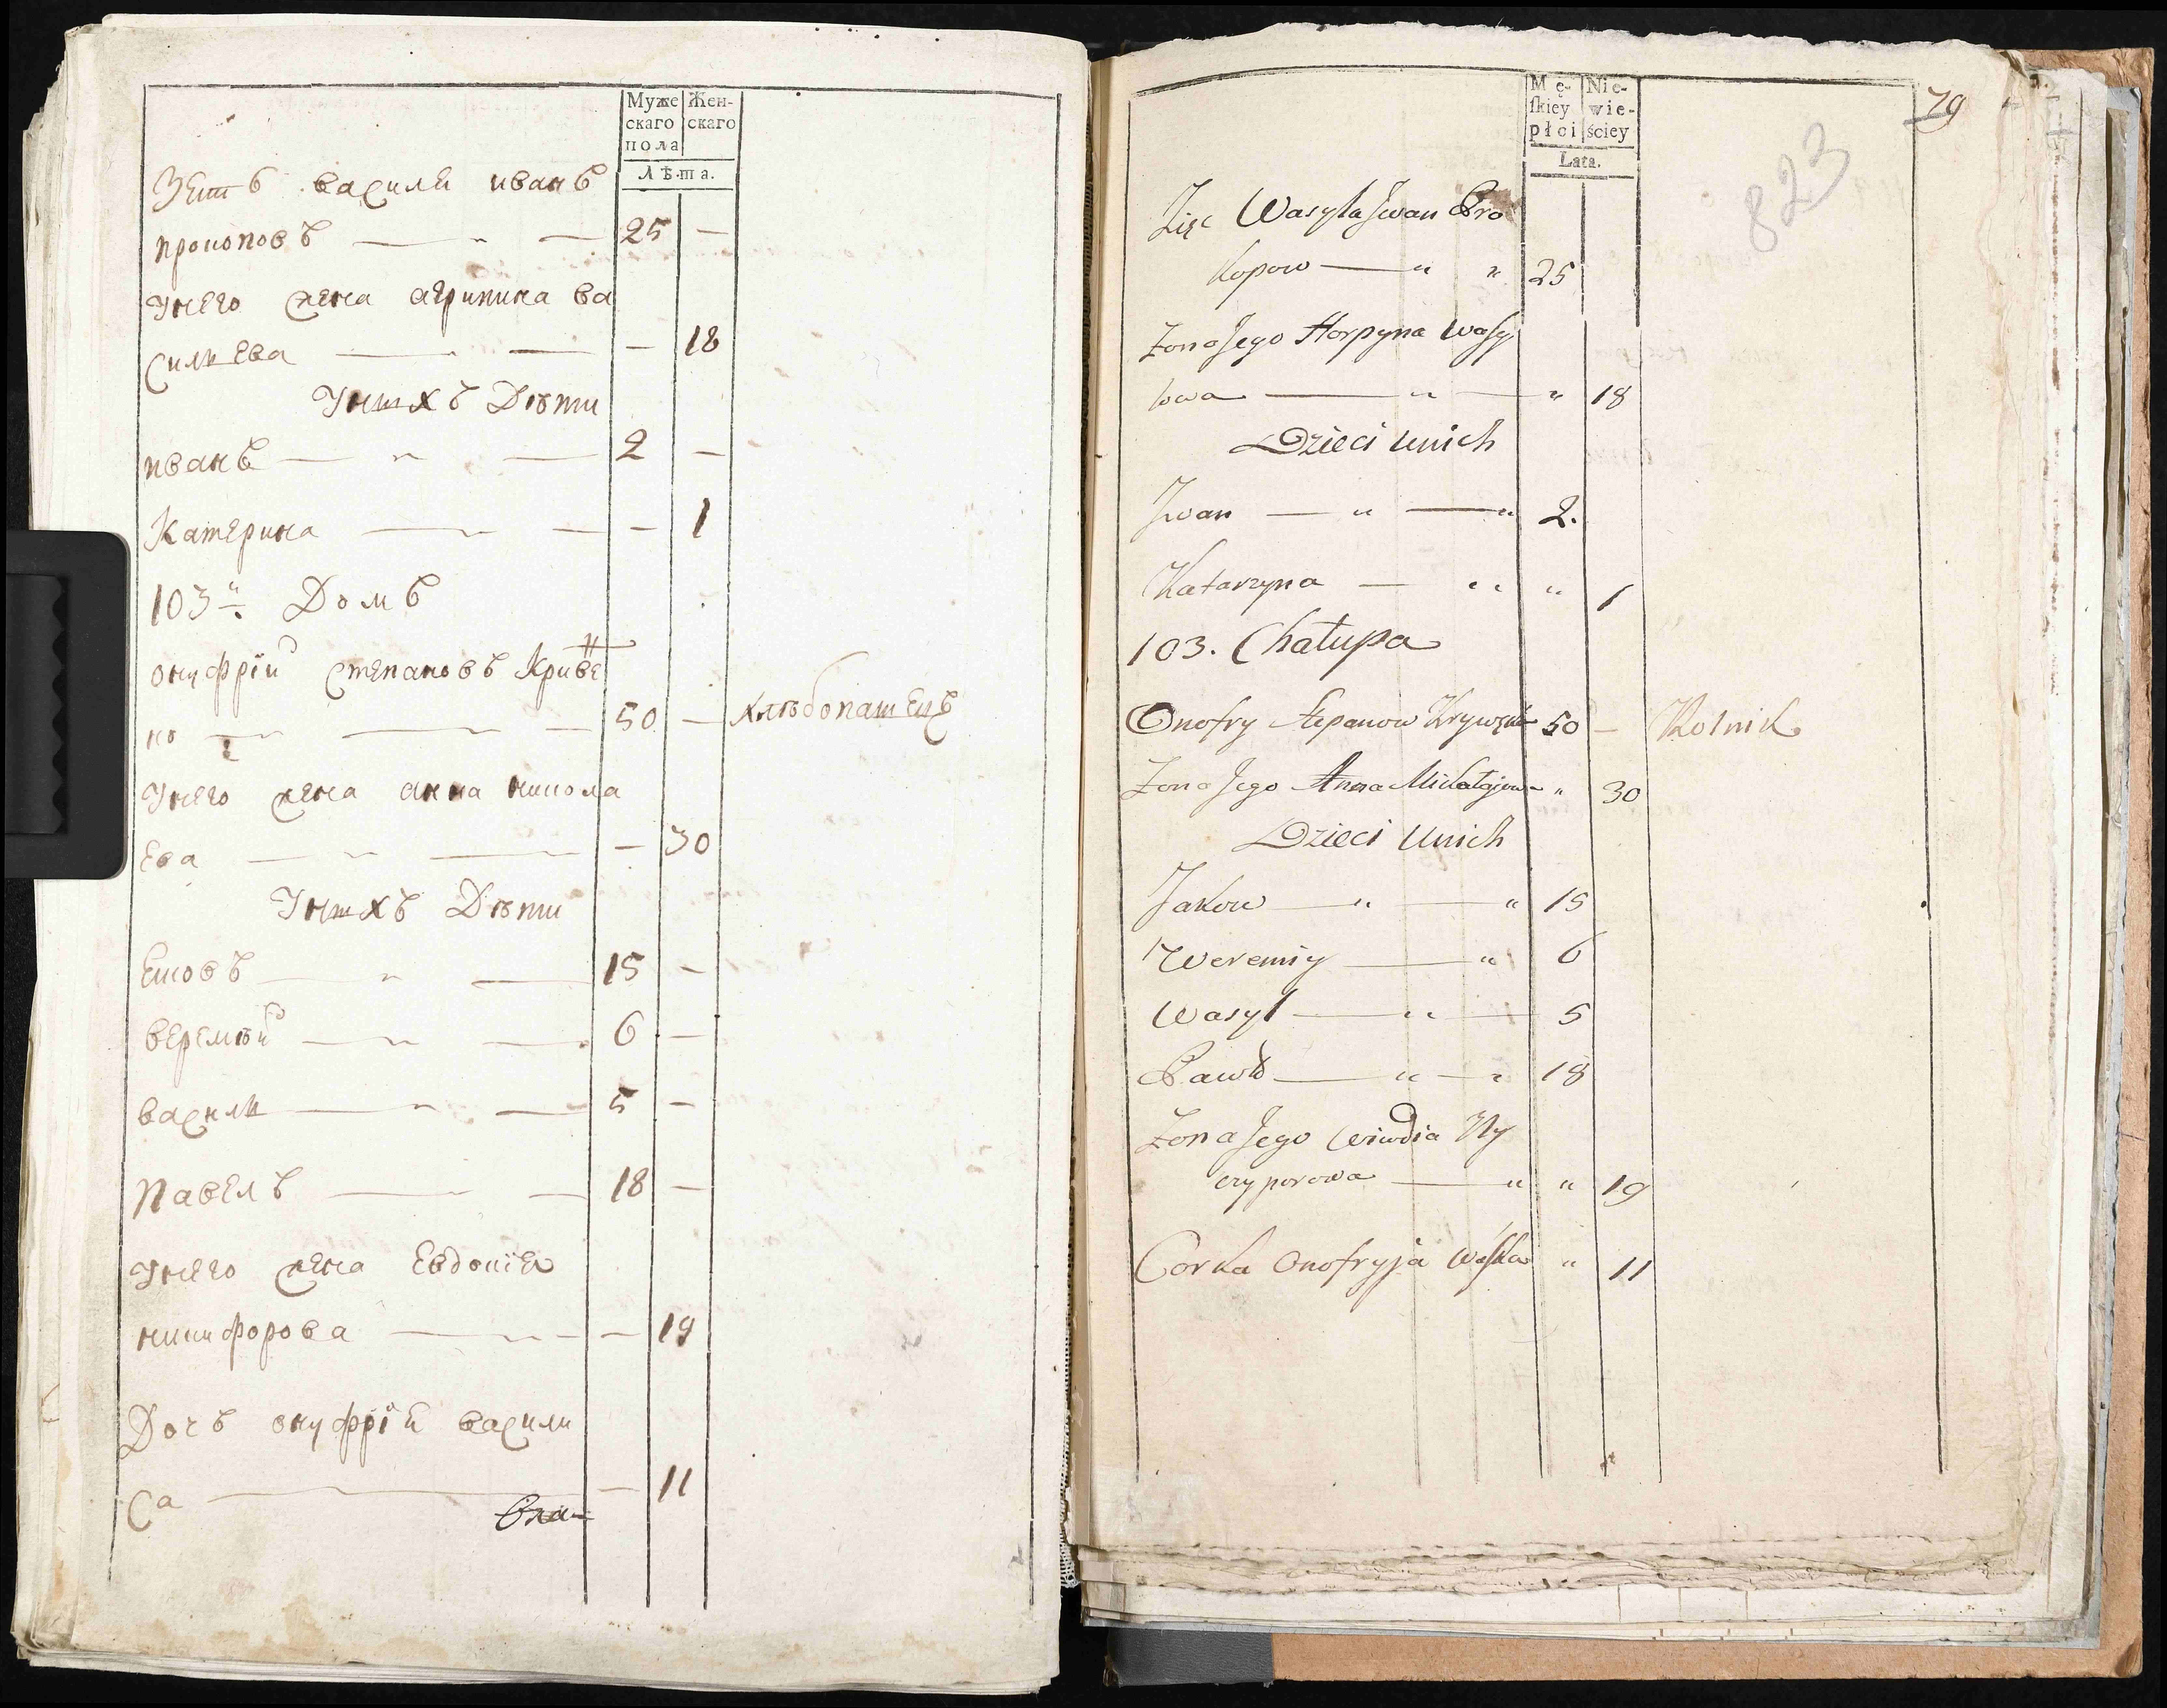 Муже Жен-
скаго скаго
пола
Лѣта.
Зеть василя иванъ
прокоповъ — „ — 25 —
Унего жена агрипина ва
силиева — — — 18
Унихъ Дѣти
иванъ — „ — 2 —
Катерина — „ — — 1
103й Домъ
онуфрій степановъ Криве
но — „ — 50 — хлѣбопашецъ
Унего жена анна никола
ева — „ — — 30
Унихъ Дѣти
Ековъ — „ — 15 —
веремѣй — „ — 6 —
василь — „ — 5 —
Павелъ — — 18 —
Унего жена Евдокія
никифорова — „ — — 19
Дочь онуфрій васили
са — — 11
79
823
Mę- Nie-
skiey wie-
płci ściey
Lata.
Zięć Wasyla Jwan Pro
kopow — „ „ 25
Zona Jego Horpyna Wasy
lowa — „ — „ 18
Dzieci Unich
Jwan — „ — „ 2.
Katarzyna — „ „ 1
103. Chałupa
Onofry Stepanow Krywenko 50 — Rolnik
Zona Jego Anna Mikołajowa „ 30
Dzieci Unich
Jakow — „ — „ 15
Weremiy — „ 6
Wasyl — „ — 5
Pawło — „ — „ 18
Zona Jego Wiwdia Ny
czyporowa — „ „ 19
Corka Onofryja Waska „ 11